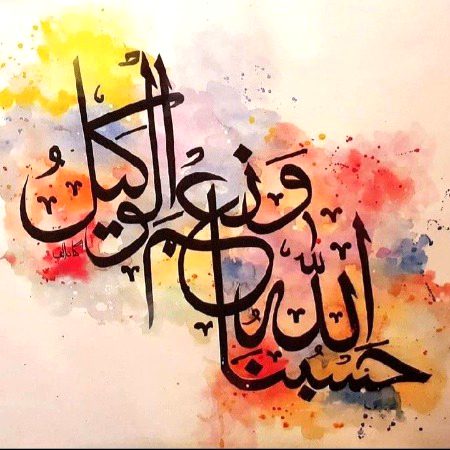 حَسْبُنَا اللّٰهُ
وَنِعْمَ الْوَكيلُ